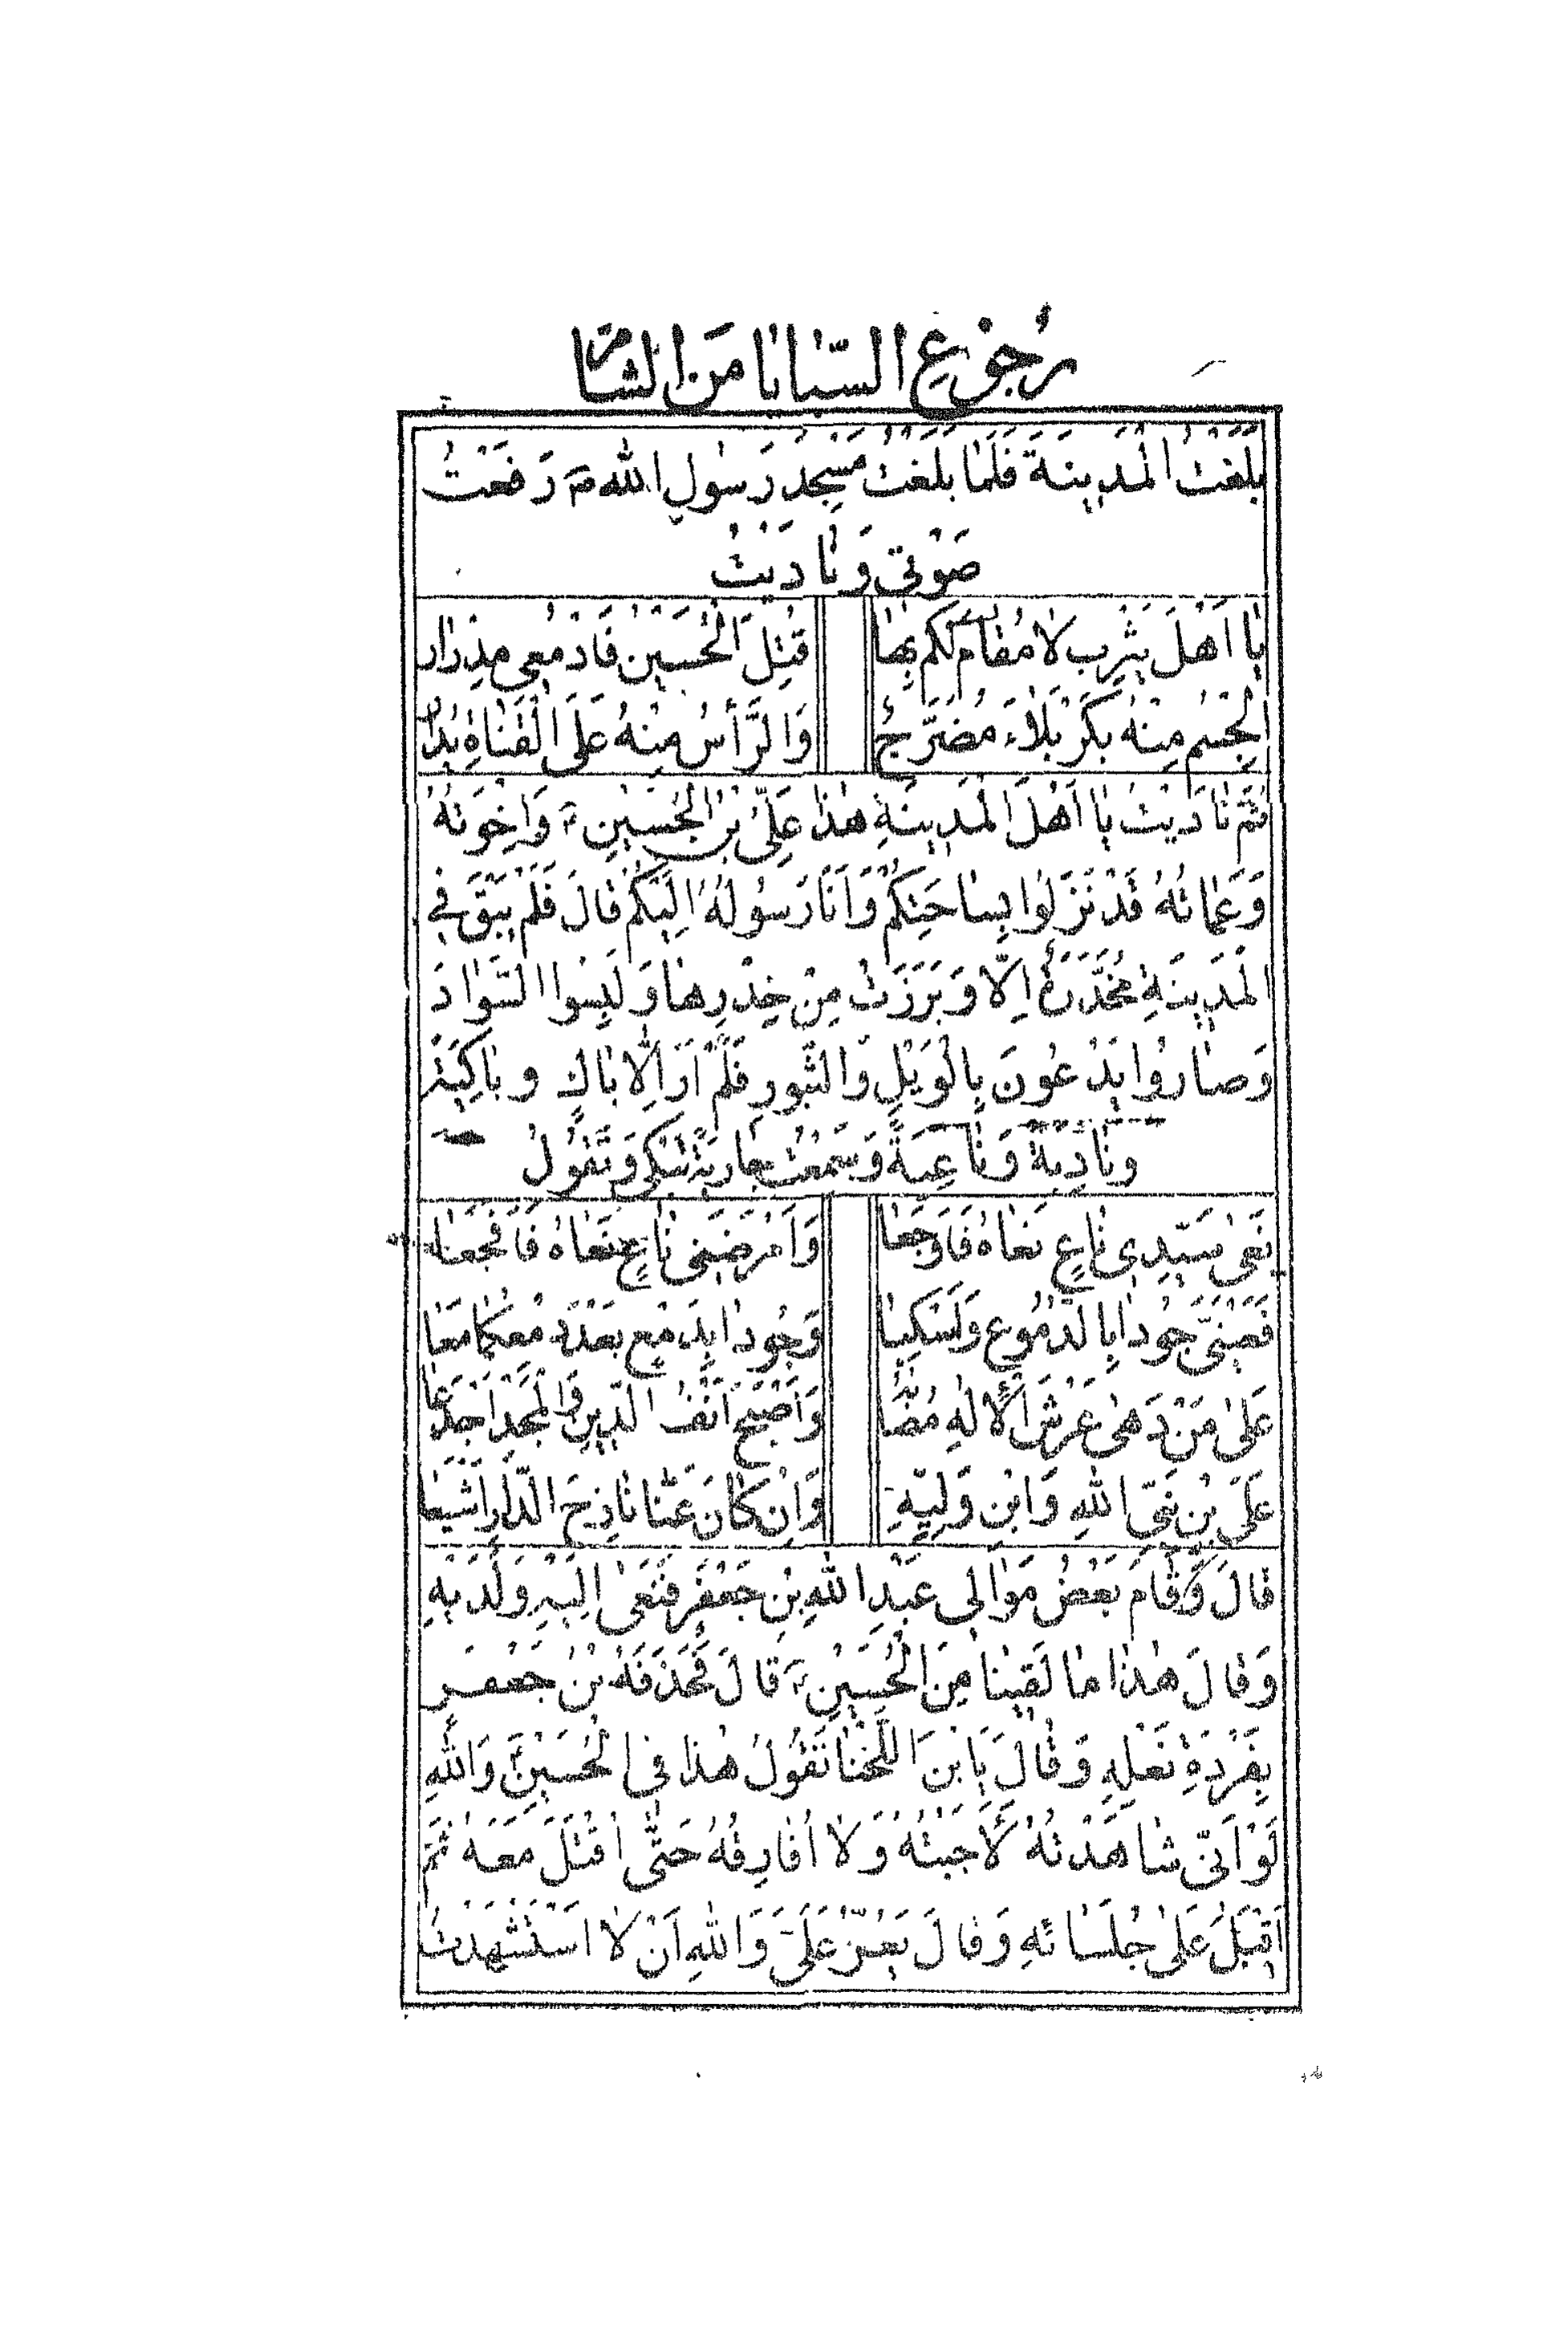 رُجُوعِ السَّبَايَا مِنَ الشَّامِ
بَلَغْتُ الْمَدِينَةَ فَلَمَّا بَلَغْتُ مَسْجِدَ رَسُولِ اللهِ ص رَفَعْتُ
صَوْتِي وَنَادَيْتُ
يَا أَهْلَ يَثْرِبَ لَا مُقَامَ لَكُمْ بِهَا قُتِلَ الْحُسَيْنُ فَادْمُعِي مِدْرَارُ
الْجِسْمُ مِنْهُ بِكَرْبَلَاءَ مُضَرَّجٌ وَالرَّأْسُ مِنْهُ عَلَى الْقَنَاةِ يُدَارُ
ثُمَّ نَادَيْتُ يَا أَهْلَ الْمَدِينَةِ هٰذَا عَلِيُّ بْنُ الْحُسَيْنِ ع وَإِخْوَتُهُ
وَعَمَّاتُهُ قَدْ نَزَلُوا بِسَاحَتِكُمْ وَأَنَا رَسُولُهُ إِلَيْكُمْ قَالَ فَلَمْ يَبْقَ فِي
الْمَدِينَةِ مُخَدَّرَةٌ إِلَّا وَبَرَزَتْ مِنْ خِدْرِهَا وَلَبِسُوا السَّوَادَ
وَصَارُوا يَدْعُونَ بِالْوَيْلِ وَالثُّبُورِ فَلَمْ أَرَ إِلَّا بَاكٍ وبَاكِيَةٍ
ونَادِبَةً وَنَاعِيَةً وَسَمِعْتُ جَارِيَةً تَبْكِي وَتَقُولُ
نَعٰى سَيِّدِي نَاعٍ نَعَاهُ فَاَوْجَعَا وَاَمْرَضَنِي نَاعٍ نَعَاهُ فَاَفْجَعَا
فَعَيْنَيَّ جُودَا بِالدُّمُوعِ وَاَسْكِبَا وَجُودَا بِدَمْعٍ بَعْدَ دَمْعِكُمَا مَعَا
عَلٰى مَنْ دَهٰى عَرْشَ الْإِلٰهِ وَاَصْبَحَ اَنْفُ الدِّينِ وَالْمَجْدِ اَجْدَعَا
عَلَى بْنِ نَبِيِّ اللهِ وَابْنِ وَلِيِّهِ وَاِنْ كَانَ عَنَّا نَازِحَ الدَّارِ اَشْسَعَا
قَالَ وَقَامَ بَعْضُ مَوَالِي عَبْدِ اللهِ بْنِ جَعْفَرٍ فَنَعٰى إِلَيْهِ وَلَدَيْهِ
وَقَالَ هٰذَا مَا لَقِينَا مِنَ الْحُسَيْنِ ع قَالَ فَحَذَفَهُ بْنُ جَعْفَرٍ
بِفَرْدَةِ نَعْلِهِ وَقَالَ يَابْنَ اللَّخْنَا تَقُولُ هٰذَا فِي الْحُسَيْنِ ع وَاللهِ
لَوْ اَنِّي شَاهَدْتُهُ لَأَجَبْتُهُ وَلَا اُفَارِقُهُ حَتّٰى اُقْتَلَ مَعَهُ ثُمَّ
اَقْبَلَ عَلٰى جُلَسَائِهِ وَقَالَ يَعِزُّ عَلَيَّ وَاللهِ اَنْ لَا اسْتَشْهَدْتُ